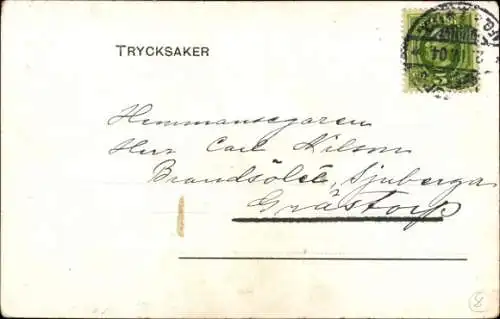 TRYCKSAKER
Hemmansegaren
Herr Carl Nilsson
Brandsölet, Sjuberga
Grästorp
8